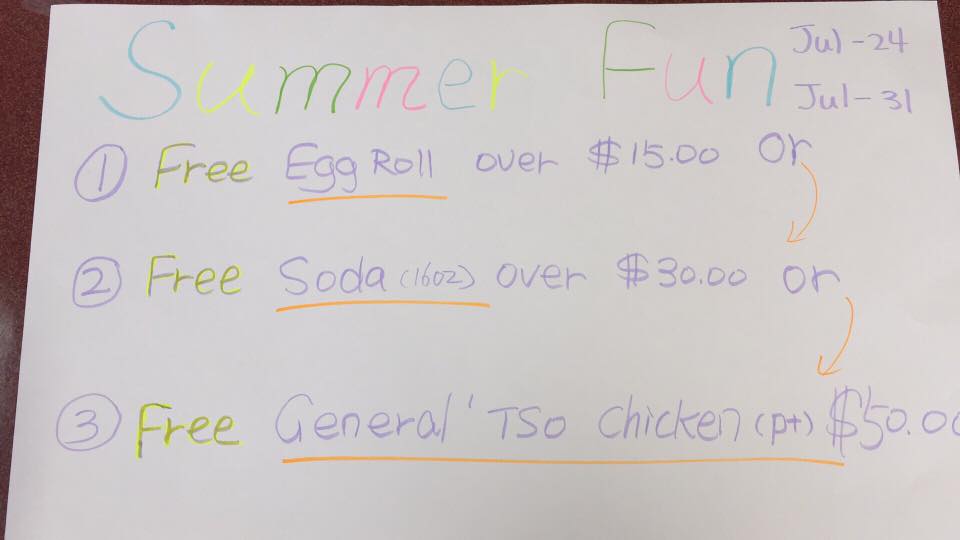 Summer Fun Jul-24
Jul-31
① Free Egg Roll over $15.00 Or
② Free Soda (16oz) over $30.00 or
③ Free General' TSO Chicken (pt) $50.00